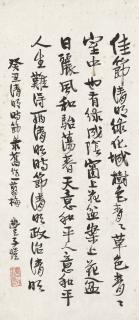 佳節清明綠化城樹色青々草色青々
室中也有綠成陰窗上花盆案上花盆
日麗風和駘蕩春天意和平人意和平
人生難得兩清明時節清明政治清明
癸丑清明時節書舊作一剪梅
豐子愷